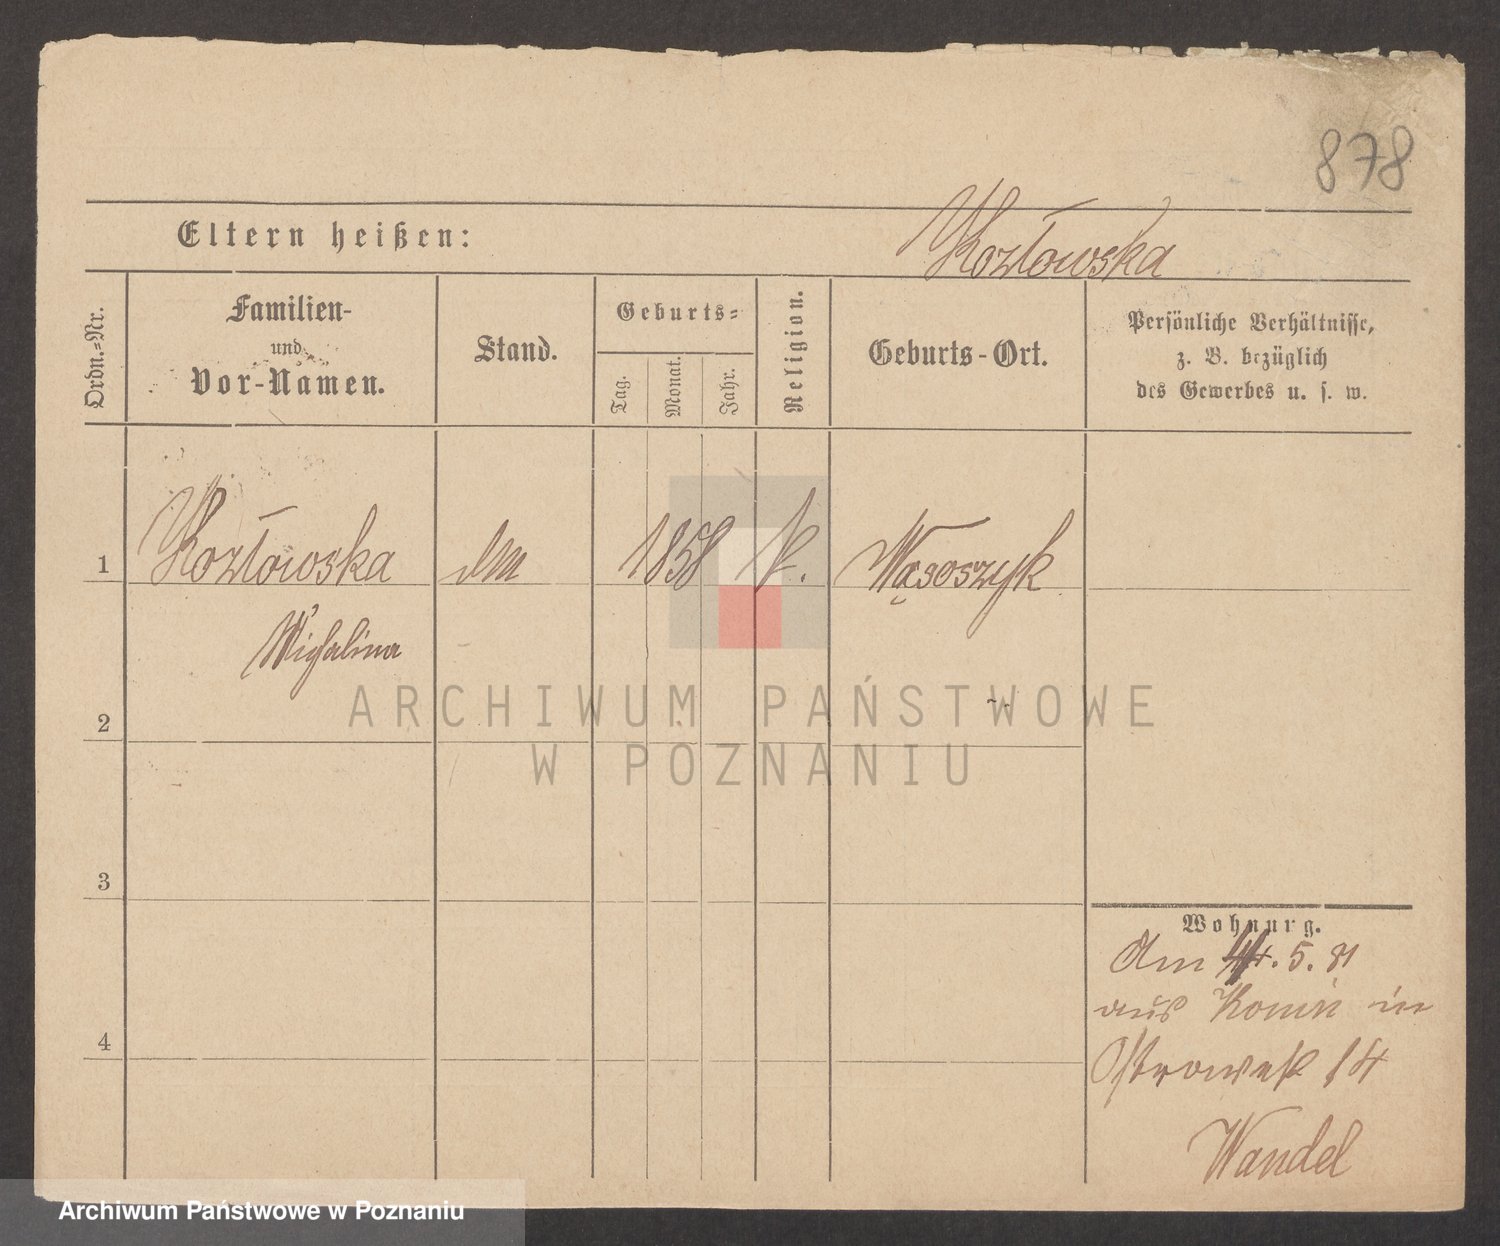 878
Eltern heißen:
Kozłowska
Ordn.-Nr.
Familien-
und
Vor-Namen.
Stand.
Geburts-
Tag.
Monat.
Jahr.
Religion.
Geburts-Ort.
Persönliche Verhältnisse,
z. B. bezüglich
des Gewerbes u. s. w.
1
Kozłowska
1858
k.
Wąsoszyk
Michalina
ARCHIWUM PAŃSTWOWE
2
W POZNANIU
3
Wohnurg.
Am 5. 81
aus Konin in
4
Ostrowek 14
Wandel
Archiwum Państwowe w Poznaniu